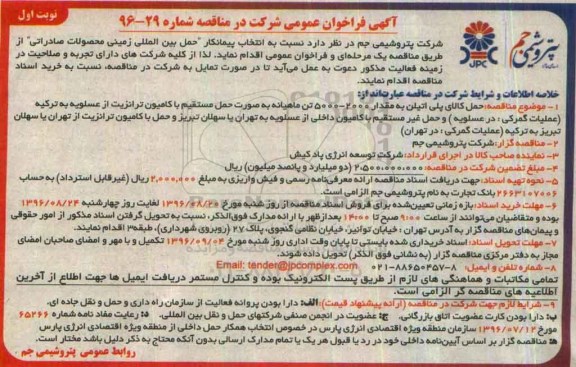 نوبت اول
آگهی فراخوان عمومی شرکت در مناقصه شماره ۲۹-۹۶
پتروشیمی جم
JPC
شرکت پتروشیمی جم در نظر دارد نسبت به انتخاب پیمانکار "حمل بین المللی زمینی محصولات صادراتی" از
طریق مناقصه یک مرحله‌ای و فراخوان عمومی اقدام نماید. لذا از کلیه شرکت های دارای تجربه و صلاحیت در
زمینه فعالیت مذکور دعوت به عمل می‌آید تا در صورت تمایل به شرکت در مناقصه، نسبت به خرید اسناد
مناقصه اقدام نمایند.
خلاصه اطلاعات و شرایط شرکت در مناقصه عبارت‌اند از:
۱- موضوع مناقصه: حمل کالای پلی اتیلن به مقدار ۲۰۰۰-۵۰۰۰ تن ماهیانه به صورت حمل مستقیم با کامیون ترانزیت از عسلویه به ترکیه
(عملیات گمرکی : در عسلویه) و حمل غیر مستقیم با کامیون داخلی از عسلویه به تهران یا سهلان تبریز و حمل با کامیون ترانزیت از تهران یا سهلان
تبریز به ترکیه (عملیات گمرکی : در تهران)
۲- مناقصه گزار: شرکت پتروشیمی جم
۳- نماینده صاحب کالا در اجرای قرارداد: شرکت توسعه انرژی پاد کیش
۴- مبلغ تضمین شرکت در مناقصه: ۲،۵۰۰،۰۰۰،۰۰۰ (دو میلیارد و پانصد میلیون) ریال
۵- نحوه تهیه اسناد: جهت دریافت اسناد مناقصه ارائه معرفی‌نامه رسمی و فیش واریزی به مبلغ ۲،۰۰۰،۰۰۰ ریال (غیرقابل استرداد) به حساب
۲۶۶۳۱۰۷۸۰۶ بانک تجارت به نام پتروشیمی جم الزامی است.
۶- مهلت خرید اسناد: بازه زمانی تعیین‌شده برای فروش اسناد مناقصه از روز شنبه مورخ ۱۳۹۶/۰۸/۲۰ لغایت روز چهارشنبه ۱۳۹۶/۰۸/۲۴
بوده و متقاضیان می‌توانند از ساعت ۹:۰۰ صبح تا ۱۴:۰۰ بعدازظهر با ارائه مدارک فوق‌الذکر، نسبت به تحویل گرفتن اسناد مذکور از امور حقوقی
و پیمان‌های مناقصه گزار به آدرس تهران ، خیابان توانیر، خیابان نظامی گنجوی، پلاک ۲۷ (روبروی شهرداری)، طبقه۳ اقدام نمایند.
۷- مهلت تحویل اسناد: اسناد خریداری شده بایستی تا پایان وقت اداری روز شنبه مورخ ۱۳۹۶/۰۹/۰۴ تکمیل و با مهر و امضای صاحبان امضای
مجاز به دفتر مرکزی مناقصه گزار (به نشانی فوق الذکر) تحویل داده شوند.
۸- شماره تلفن و ایمیل: ۸-۸۸۶۵۰۴۵۷-۰۲۱ Email: tender@jpcomplex.com
تمامی مکاتبات و هماهنگی های لازم از طریق پست الکترونیک بوده و کنترل مستمر دریافت ایمیل ها جهت اطلاع از آخرین
اطلاعیه های مناقصه گر الزامی است.
۹- شرایط لازم جهت شرکت در مناقصه (ارائه پیشنهاد قیمت): الف: دارا بودن پروانه فعالیت از سازمان راه داری و حمل و نقل جاده ای.
ب: دارا بودن کارت عضویت اتاق بازرگانی. ج: عضویت در انجمن صنفی شرکتهای حمل و نقل بین المللی. د: رعایت مفاد نامه شماره ۶۵۲۶۶
مورخ ۱۳۹۶/۰۷/۱۲ سازمان منطقه ویژه اقتصادی انرژی پارس در خصوص انتخاب همکار حمل داخلی از منطقه ویژه اقتصادی انرژی پارس
ه: مناقصه گزار بر اساس آیین‌نامه داخلی خود در رد یا قبول هر یک یا تمام مدارک ارسالی بدون آنکه محتاج به ذکر دلیل باشد مختار است.
روابط عمومی پتروشیمی جم